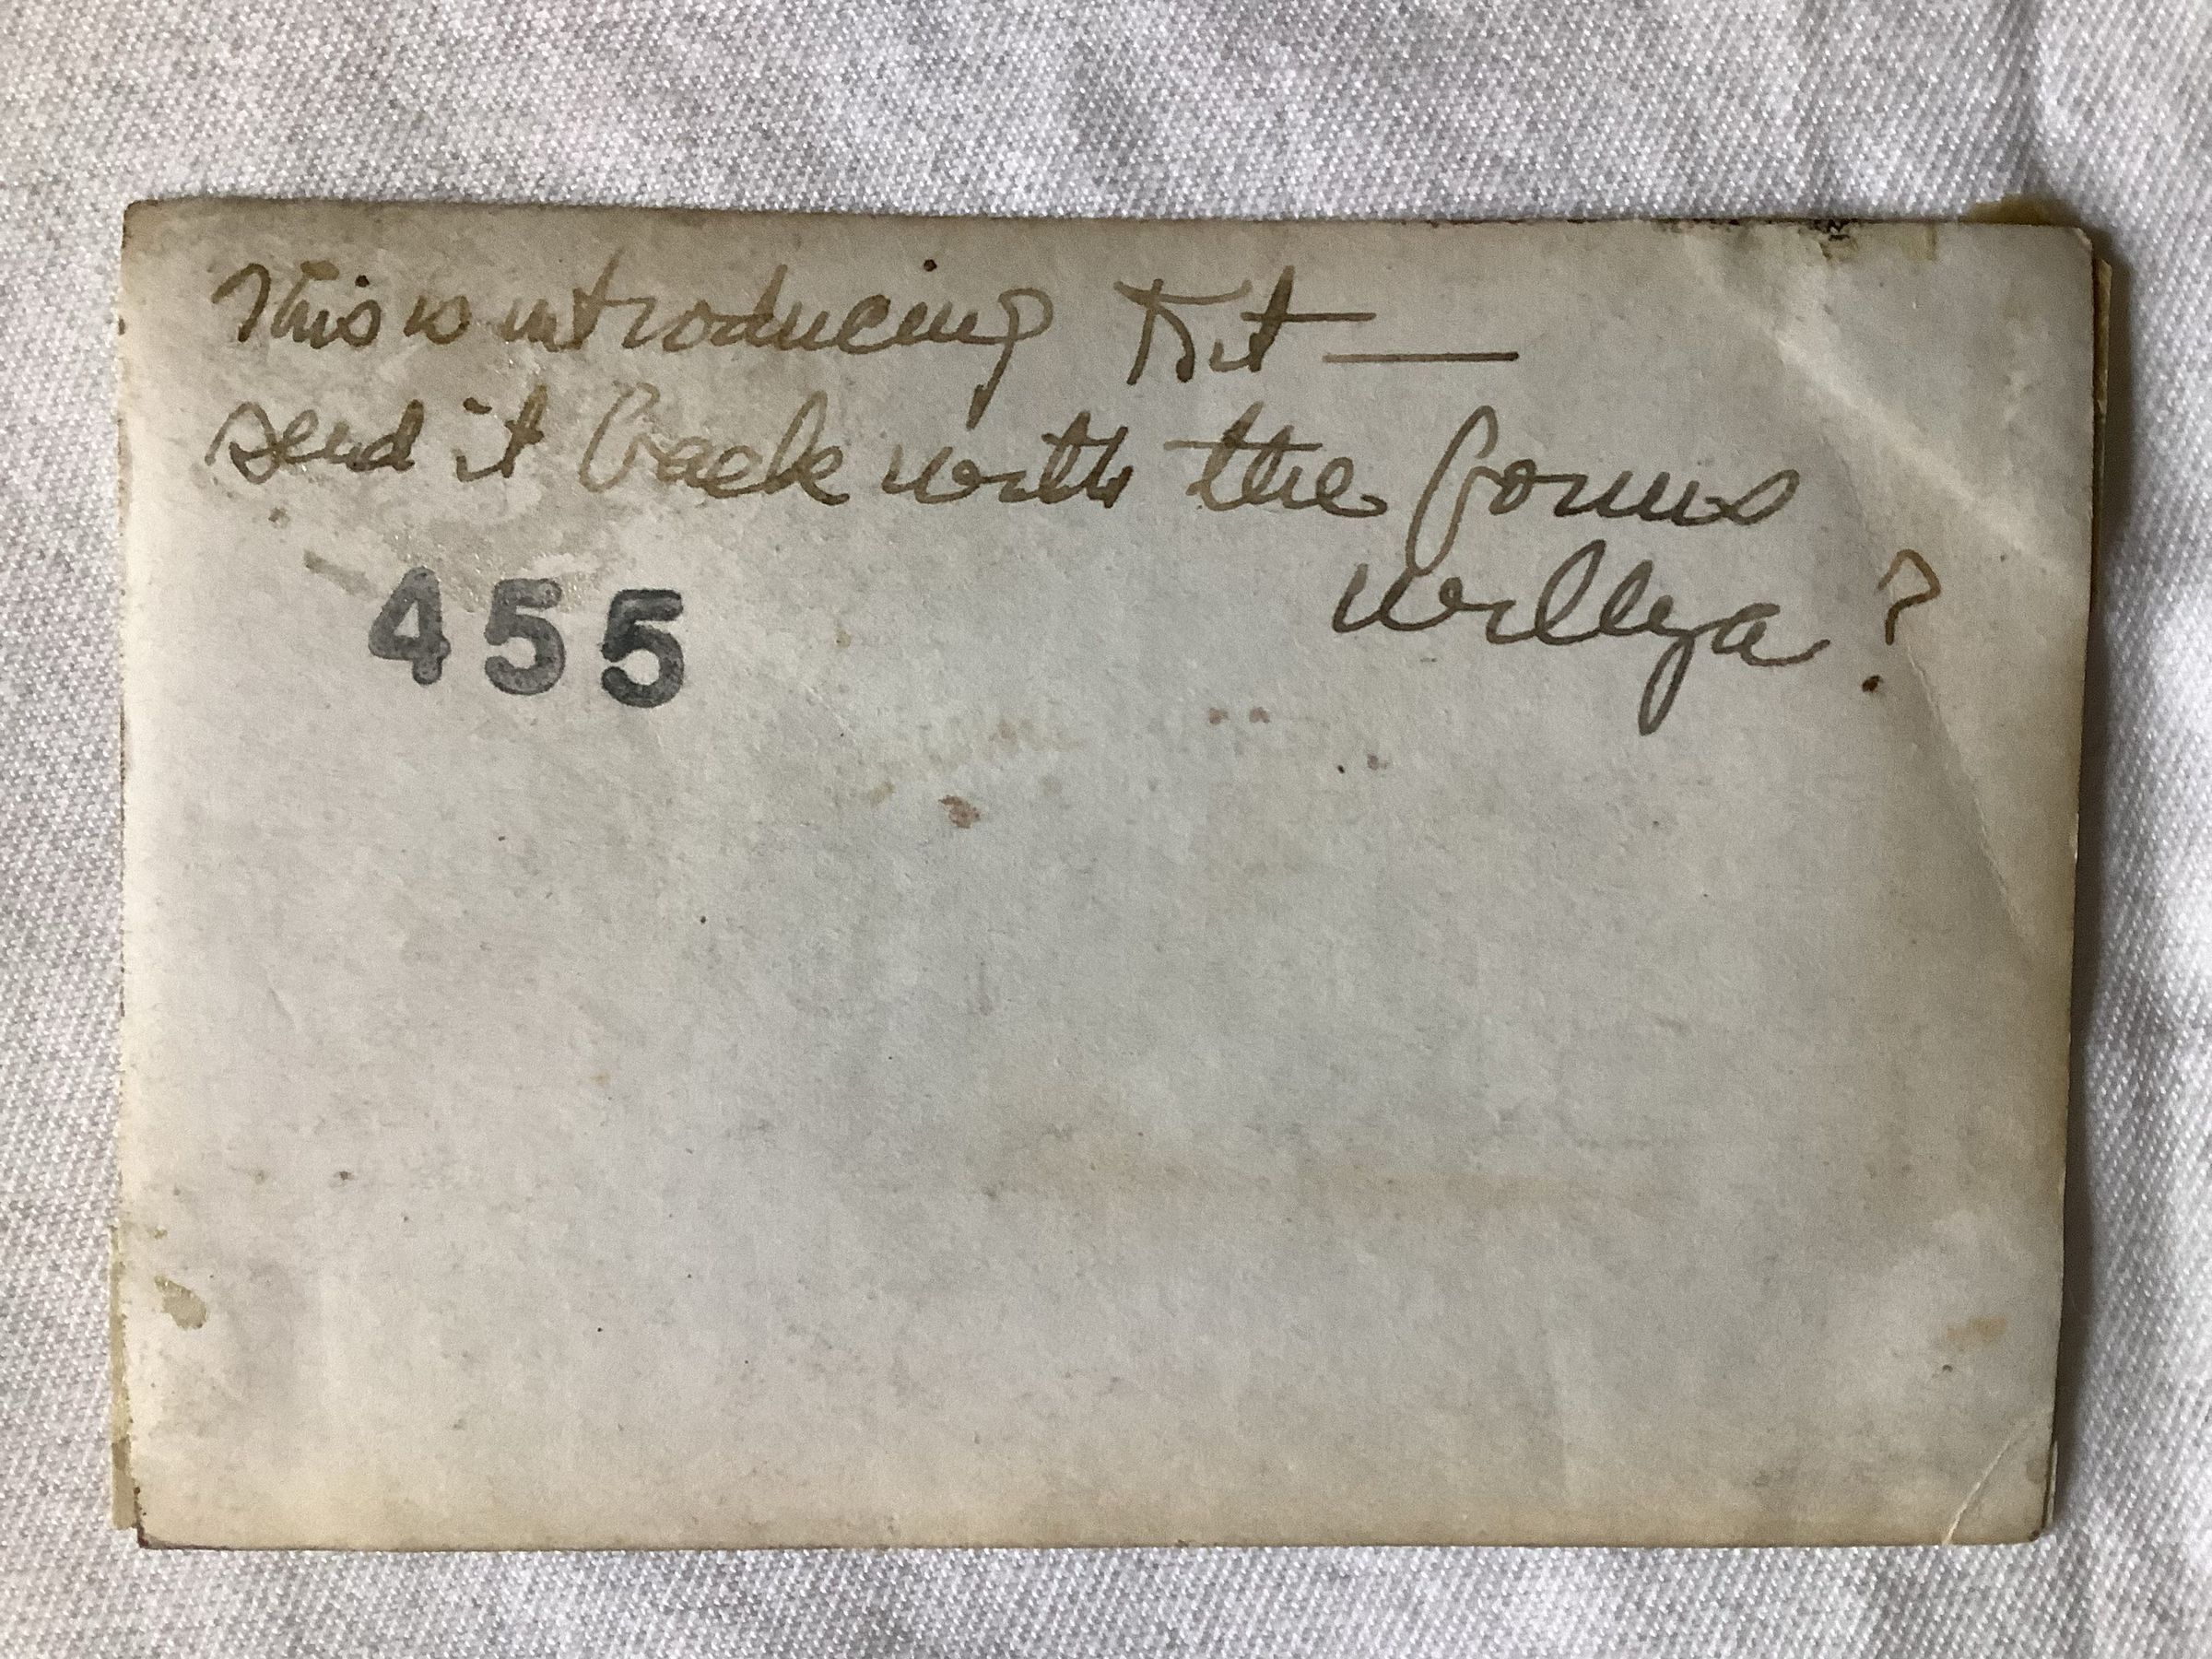 This is introducing Kit —
send it back with the forms
willya ?
455